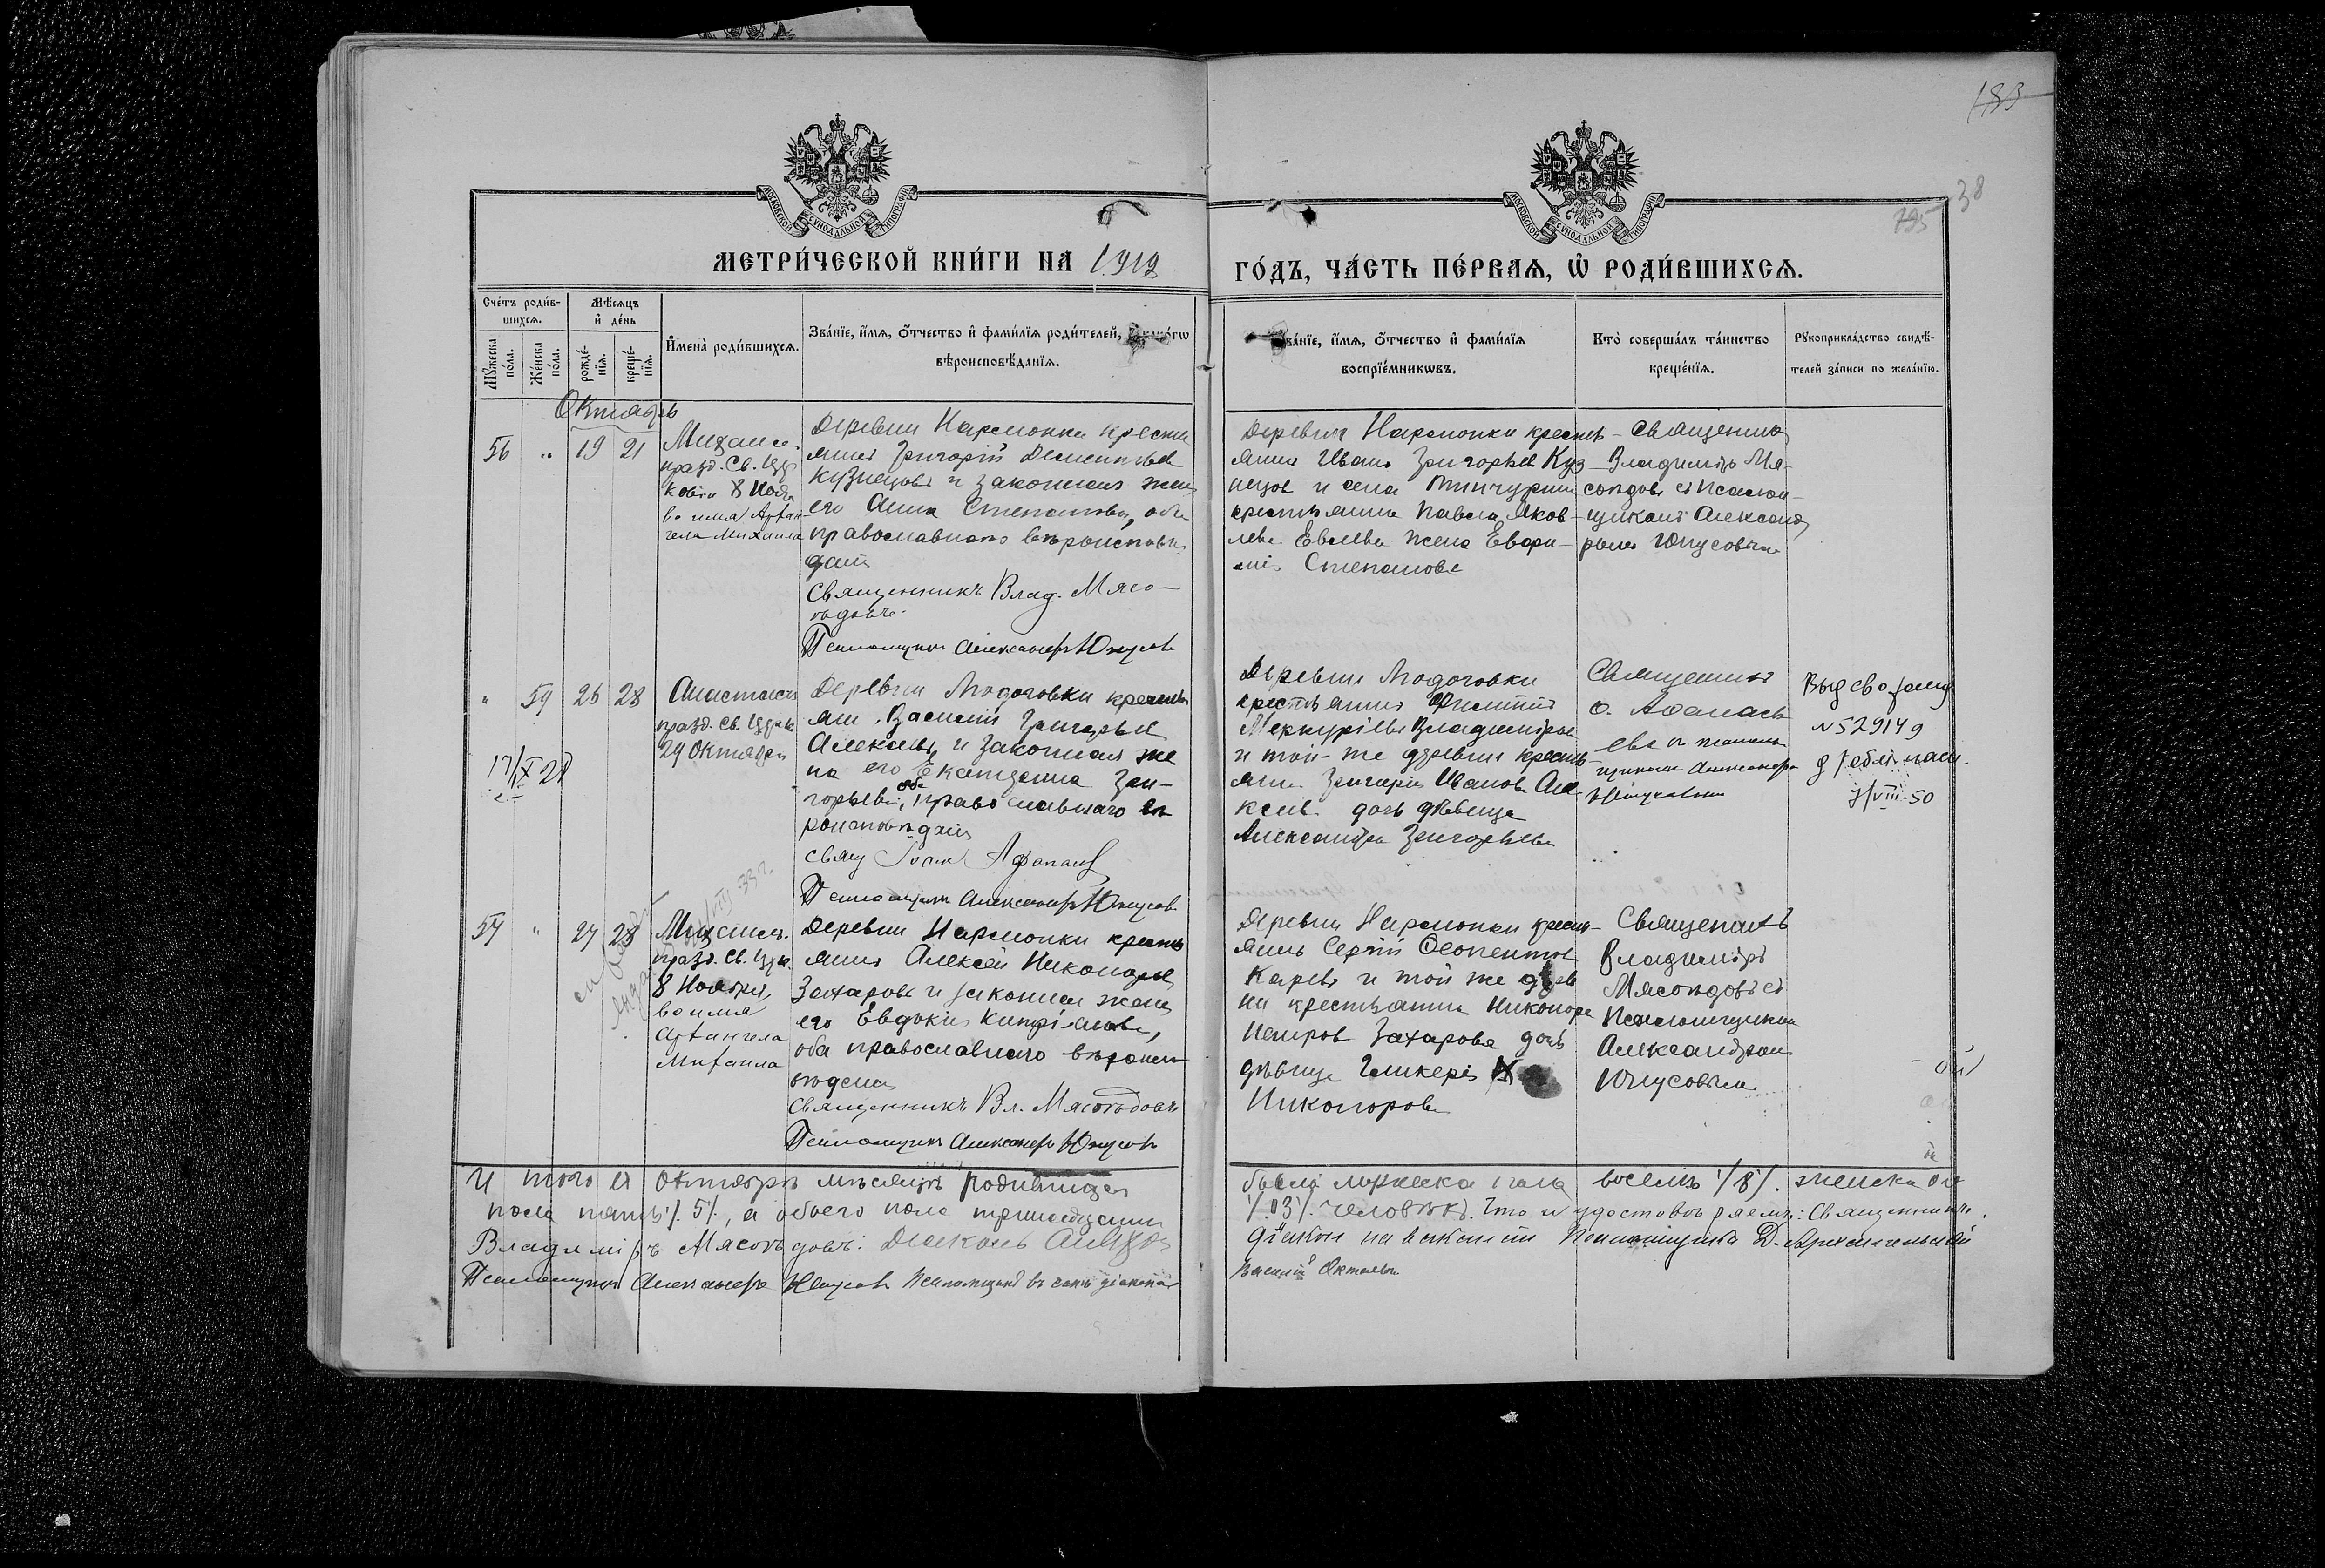 133
38
195
МОСКОВСКОЙ СѴНОДАЛЬНОЙ ТИПОГРАФІИ
МОСКОВСКОЙ СѴНОДАЛЬНОЙ ТИПОГРАФІИ
МЕТРИ́ЧЕСКОЙ КНИ́ГИ НА 1912
ГО́ДЪ, ЧА́СТЬ ПЕ́РВАѦ, Ѽ РОДИ́ВШИХСѦ.
Сче́тъ роди́в-
шихсѧ.
Мѣ́сѧцъ
и҆ де́нь
Мꙋ́жеска по́ла.
Же́нска по́ла.
рожде́-
нїѧ.
креще́-
нїѧ.
И҆мена̀ роди́вшихсѧ.
Зва́нїе, и҆́мѧ, ѻ҆́тчество и҆ фами́лїѧ роди́телей, и҆ како́гѡ
вѣроисповѣ́данїѧ.
Зва́нїе, и҆́мѧ, ѻ҆́тчество и҆ фами́лїѧ
воспрїе́мникѡвъ.
Кто̀ соверша́лъ та́инство
креще́нїѧ.
Рꙋкоприкла́дство свидѣ́-
телей за́писи по жела́нїю.
Октябрь
56 " 19 21
Михаилъ
празд. Св. Цер
ковію 8 Нояб
во имя Архан
гела Михаила
Деревни Нармонки крестья
нинъ Григорій Дементьевъ
Кузнецовъ и законная жена
его Анна Степанова, оба
православнаго вѣроисповѣ
данія
Священникъ Влад. Мясо-
ѣдовъ.
Псаломщикъ Александръ Юнусовъ
Деревни Нармонки кресть-
янинъ Иванъ Григорьев Куз-
нецов и села Тинчурина
крестьянина Павла Яков-
лева Евлева жена Евфи-
мія Степанова
Священник
Владиміръ Мя-
соѣдовъ съ псалом-
щикомъ Александ
ромъ Юнусовымъ
" 59 26 28
17/X 28
Анастасія
празд. Св. Церк
29 Октября
Деревни крестья
нин Василій Григорьев
Алексѣевъ и законная же
на его Екатерина Гри-
горьева, оба православнаго вѣ
роисповѣданія
Свящ Іоан Афанас
Псаломщикъ Александръ Юнусовъ
Деревни
крестьянинъ Филиппъ
Меркурьевъ Владиміров
и той-же деревни кресть-
янина Григорія Иванова Але
ксѣева дочь дѣвица
Александра Григорьева
Священникъ
о. Афанась
евъ с псалом-
щикомъ Александро
Юнусовымъ
Выд св о рожд
№529149
VIII-50
57 " 27 28
Михаилъ.
празд. Св. Церк.
8 Ноября,
во имя
Архангела
Михаила
Деревни Нармонки кресть
янинъ Алексѣй Никоноров
Захаровъ и законная жена
его Евдокія Кипріанова,
оба православнаго вѣроиспо
вѣданія
Священникъ Вл. Мясоѣдовъ
Псаломщикъ Александръ Юнусовъ
Деревни Нармонки кресть-
янинъ Сергій Ѳеопентов
Каревъ и той же дерев
ни крестьянина Никонора
Петров Захарова дочь
дѣвица Гликерія
Никонорова
Священникъ
Владиміръ
Мясоѣдовъ съ
Псаломщиком
Александром
Юнусовымъ
И того въ Октябрѣ мѣсяцѣ родившихся было мужеска пола восемь /8/. женска
пола пять /5/, а обоего пола тринадцать /13/. человѣкъ. Что и удостовѣряемъ: Священникъ
Владиміръ Мясоѣдовъ. Діаконъ
діакон на вакансіи Псаломщика Д. Архангельскій
Псаломщикъ Александръ Юнусовъ Псаломщикъ въ санѣ діакона
Василій Октаевъ